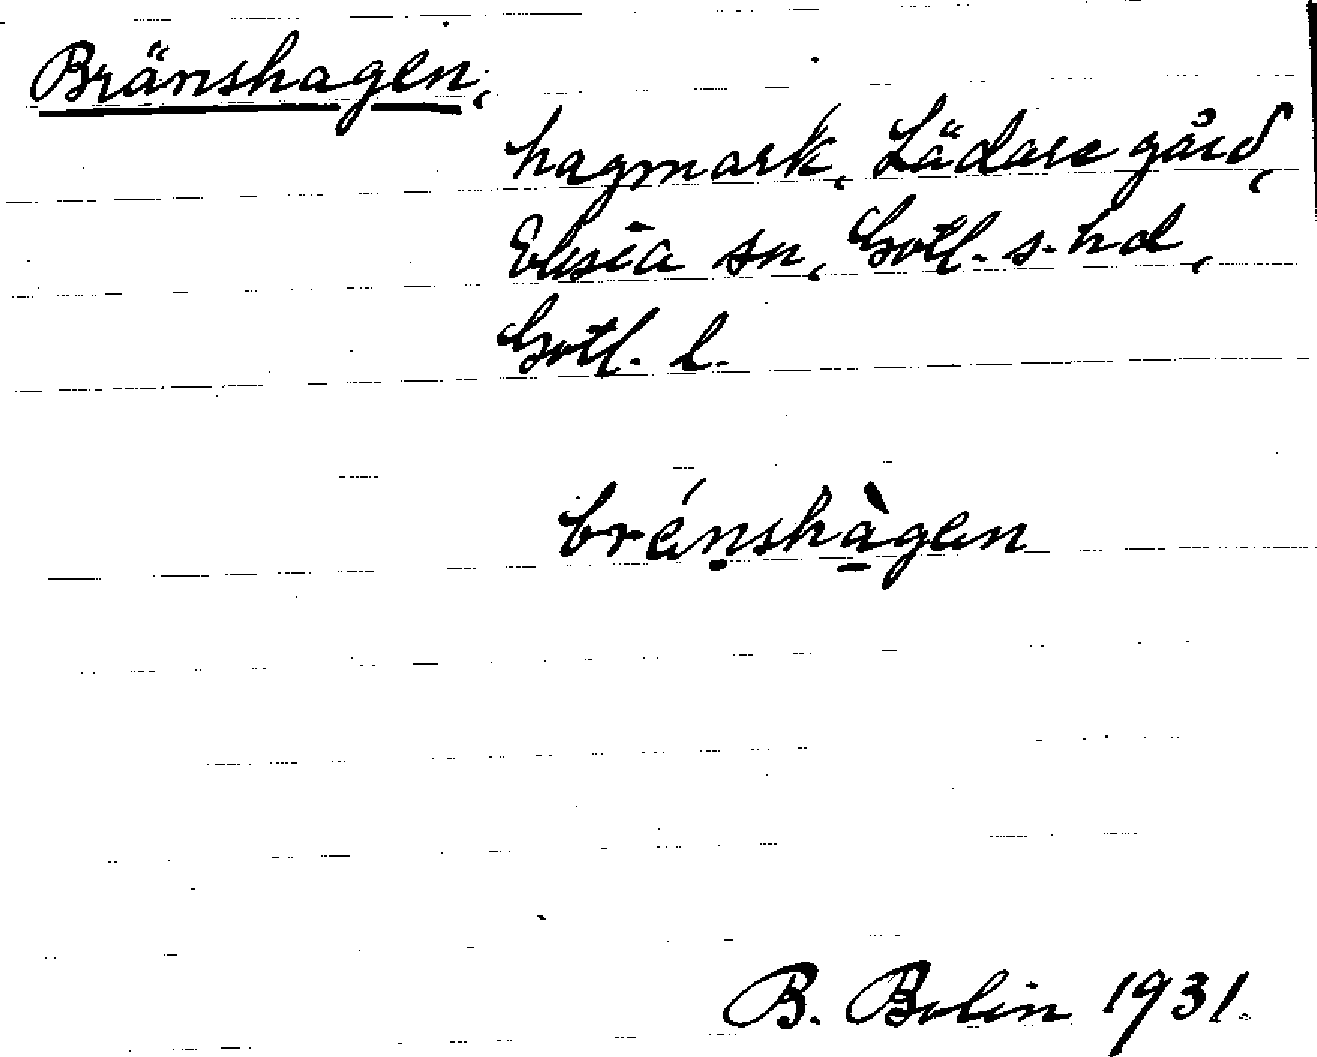 Bränshagen,
hagmark, Lädare gård,
Eksta sn, Gotl. s. hd,
Gotl. l.
brénshàgen
B. Bolin 1931.